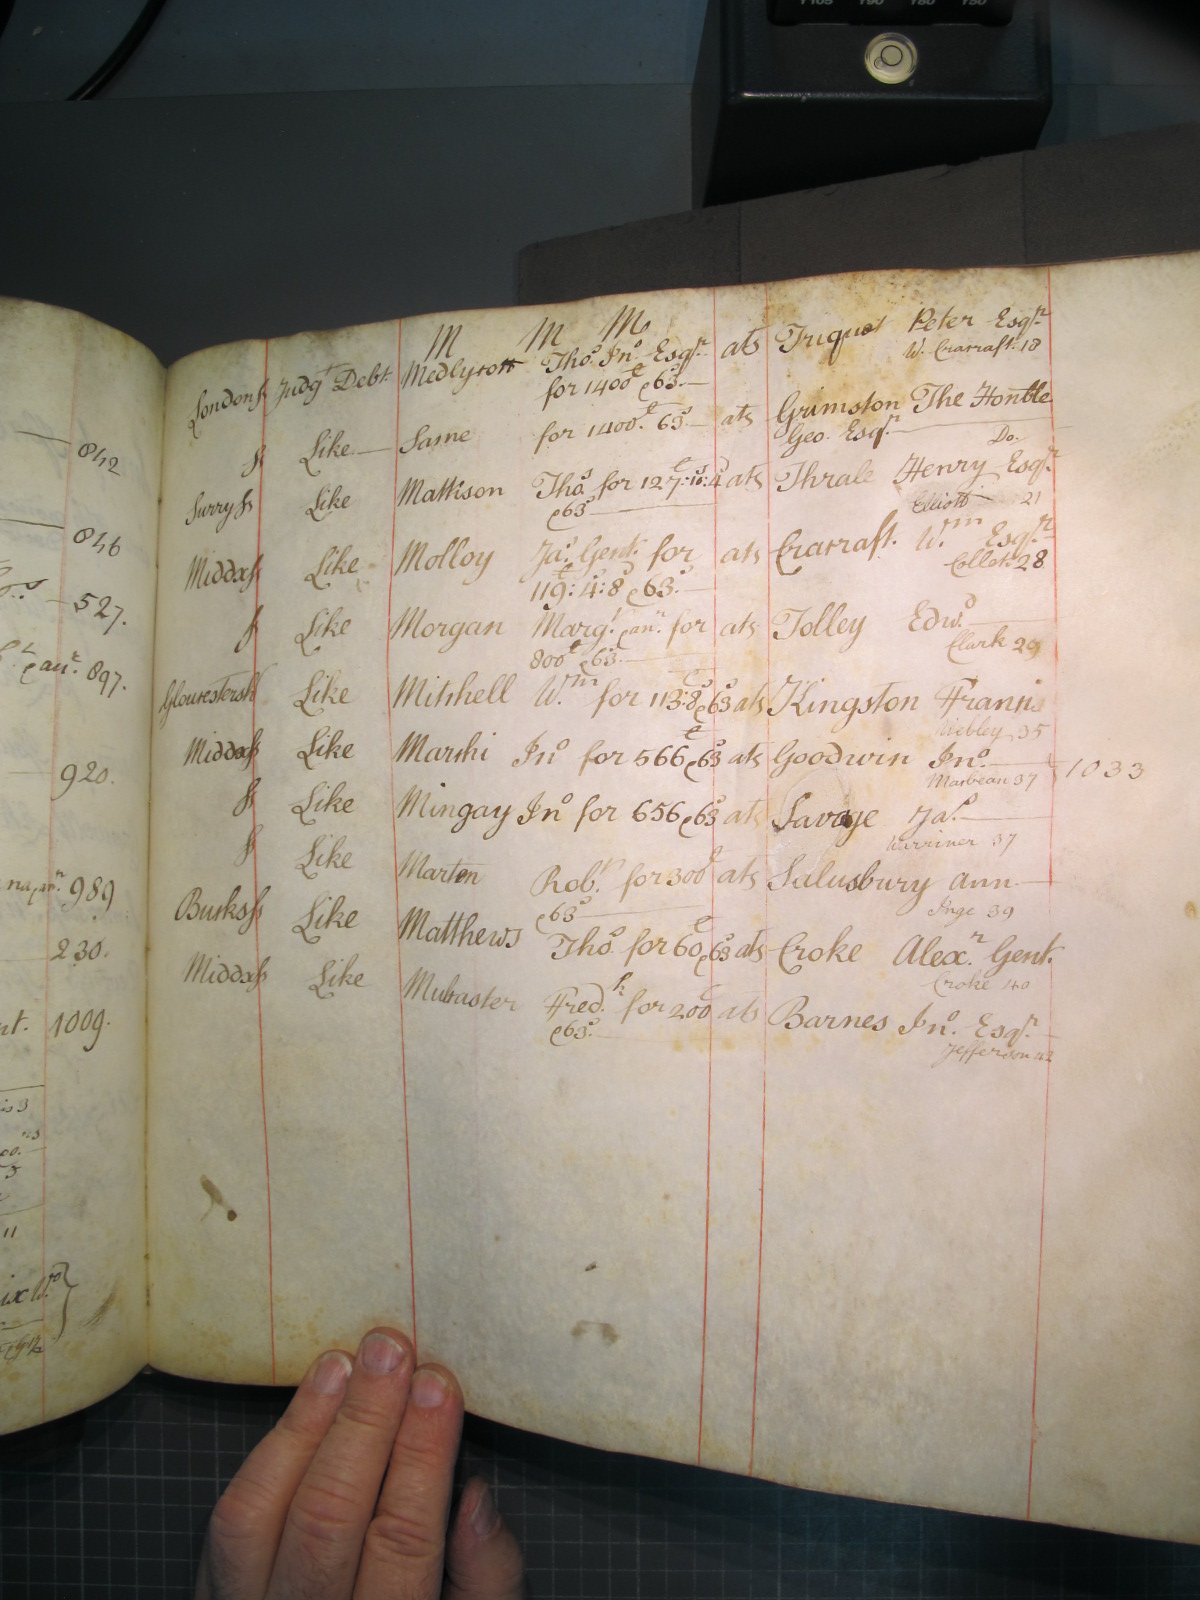 M M M
London ss Judgt Debt Medlycott Thos Jno Esqr ats Triquet Peter Esqr
for 1400£ & 63s W. Cracraft 18
ss Like Same for 1400£ 63s ats Grimston The Honble
Geo. Esqr Do.
Surry ss Like Mattison Thos for 127:10:4 ats Thrale Henry Esqr
& 63s Elliott 21
Middx ss Like Molloy Jas Gent. for ats Cracraft Wm Esqr
119£:4:8 & 63s Collet 28
ss Like Morgan Margt an. for ats Tolley Edwd
800£ & 63s Clark 29
Gloucestersh Like Mitchell Wm for 113£:8s & 63s ats Kingston Francis
35
Middx ss Like Jno for 566£ & 63s ats Goodwin Jno
37 1033
ss Like Mingay Jno for 656 & 63s ats Savage Jas
Warriner 37
ss Like Marten Robt for 300£ ats Salusbury Ann
& 63s Inge 39
Bucks ss Like Matthews Thos for 60£ & 63s ats Croke Alexr Gent.
Croke 40
Middx ss Like Fredk for 200£ ats Barnes Jno. Esqr
& 63s Jefferson 42
842
846
527.
& anr. 897.
920.
989
230.
nt. 1009.
11